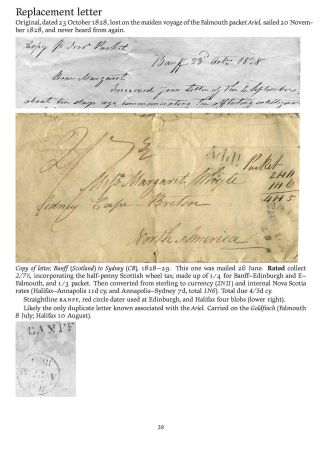 Replacement letter
Original, dated 23 October 1828, lost on the maiden voyage of the Falmouth packet Ariel, sailed 20 Novem-
ber 1828, and never heard from again.
Copy pr Packet
Banff 23d Octr 1828
Dear Margaret
I received your letter of the September
about ten days ago communicating the afflicting intelligence
Packet
2N11
1N6
4N5
Miss Margaret
Sidney Cape Breton
North America
Copy of letter, Banff (Scotland) to Sydney (CB), 1828–29. This one was mailed 26 June. Rated collect
2/7½, incorporating the half-penny Scottish wheel tax; made up of 1/4 for Banff–Edinburgh and E–
Falmouth, and 1/3 packet. Then converted from sterling to currency (2N11) and internal Nova Scotia
rates (Halifax–Annapolis 11d cy, and Annapolis–Sydney 7d, total 1N6). Total due 4/5d cy.
Straightline BANFF, red circle dater used at Edinburgh, and Halifax four blobs (lower right).
Likely the only duplicate letter known associated with the Ariel. Carried on the Goldfinch (Falmouth
8 July; Halifax 10 August).
BANFF